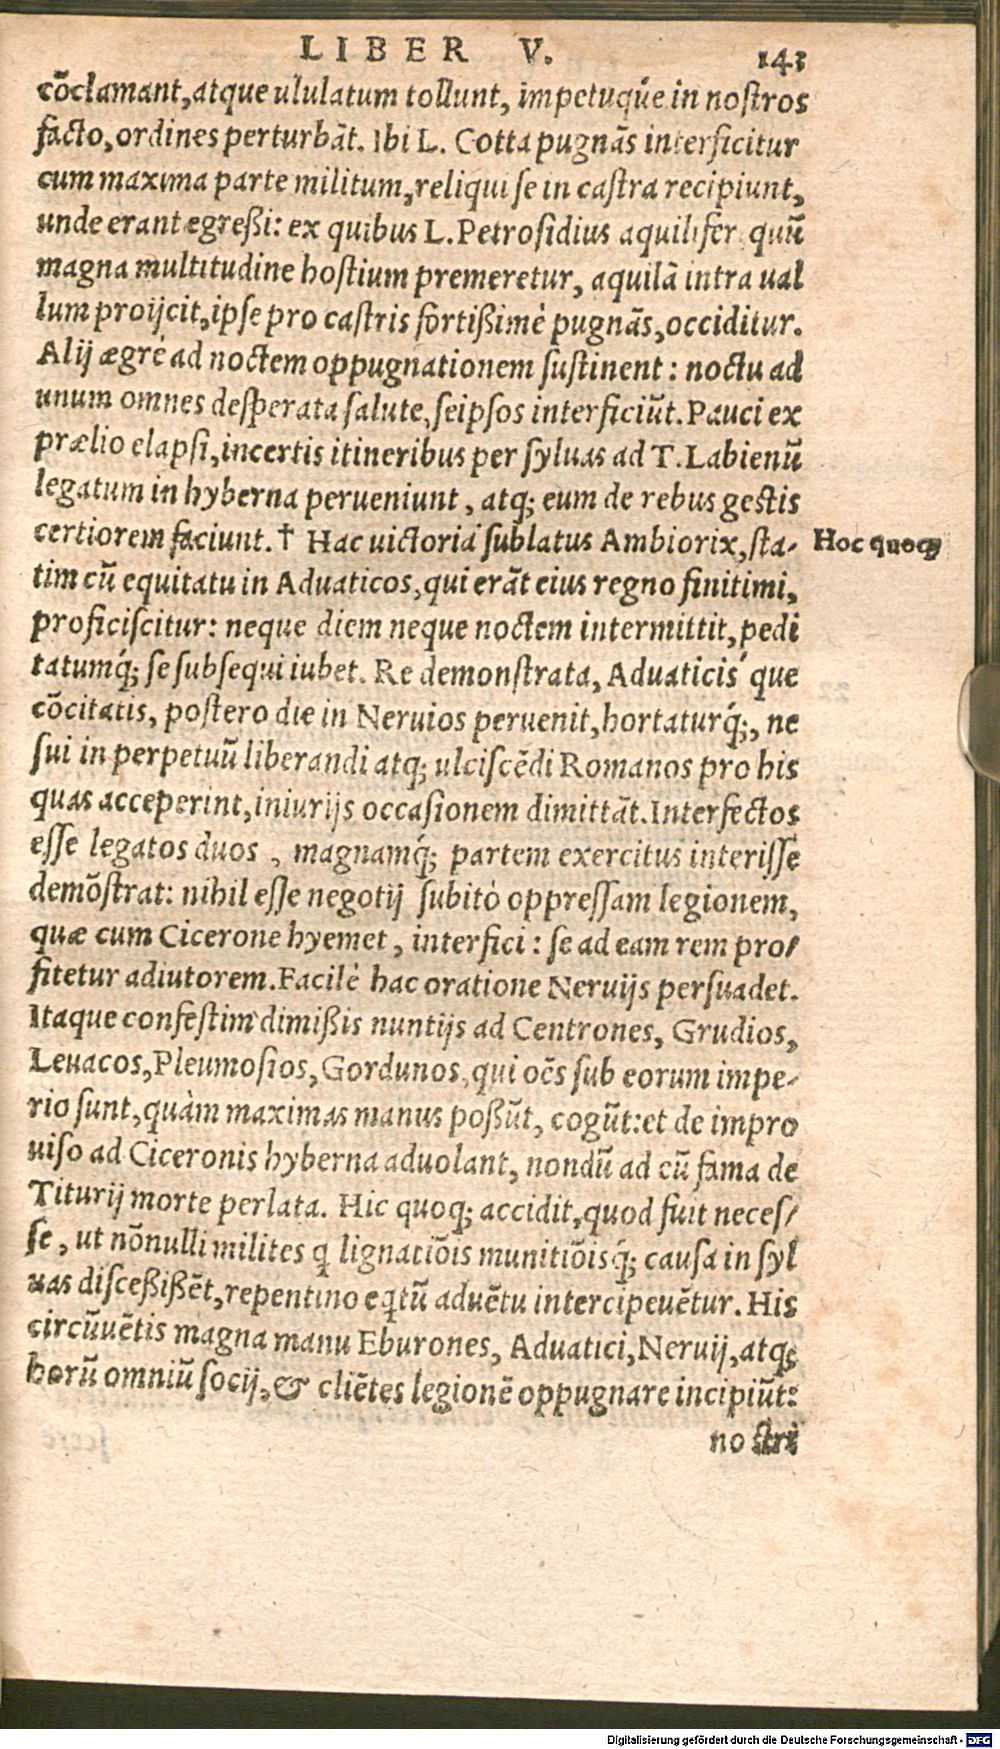 LIBER V. 143
cõclamant, atque ululatum tollunt, impetuqúe in noſtros
facto, ordines perturbãt. Ibi L. Cotta pugnãs interficitur
cum maxima parte militum, reliqui ſe in caſtra recipiunt,
unde erant egreßi: ex quibus L. Petroſidius aquilifer quũ
magna multitudine hoſtium premeretur, aquilã intra ual
lum proijcit, ipſe pro caſtris fortißimè pugnãs, occiditur.
Alij ægrè ad noctem oppugnationem ſuſtinent: noctu ad
unum omnes deſperata ſalute, ſeipſos interficiũt. Pauci ex
prælio elapſi, incertis itineribus per ſyluas ad T. Labienũ
legatum in hyberna perueniunt, atq; eum de rebus geſtis
certiorem faciunt. † Hac uictoria ſublatus Ambiorix, ſta-
Hoc quoq;
tim cũ equitatu in Aduaticos, qui erãt eius regno finitimi,
proficiſcitur: neque diem neque noctem intermittit, pedi
tatumq́; ſe ſubſequi iubet. Re demonſtrata, Aduaticis'que
cõcitatis, poſtero die in Neruios peruenit, hortaturq́;, ne
ſui in perpetuũ liberandi atq; ulciſcẽdi Romanos pro his
quas acceperint, iniurijs occaſionem dimittãt. Interfectos
eſſe legatos duos, magnamq́; partem exercitus interiſſe
demõſtrat: nihil eſſe negotij ſubitò oppreſſam legionem,
quæ cum Cicerone hyemet, interfici: ſe ad eam rem pro-
fitetur adiutorem. Facilè hac oratione Neruijs perſuadet.
Itaque confeſtim dimißis nuntijs ad Centrones, Grudios,
Leuacos, Pleumoſios, Gordunos, qui oẽs ſub eorum impe-
rio ſunt, quàm maximas manus poßũt, cogũt: et de impro
uiſo ad Ciceronis hyberna aduolant, nondũ ad cũ fama de
Titurij morte perlata. Hic quoq; accidit, quod fuit neceſ-
ſe, ut nõnulli milites q lignatiõis munitiõisq́; cauſa in ſyl
uas diſceßißẽt, repentino eqtũ aduẽtu interciperẽtur. His
circũuẽtis magna manu Eburones, Aduatici, Neruij, atq;
horũ omniũ ſocij, & cliẽtes legionẽ oppugnare incipiũt:
no ſtri
Digitalisierung gefördert durch die Deutsche Forschungsgemeinschaft - DFG